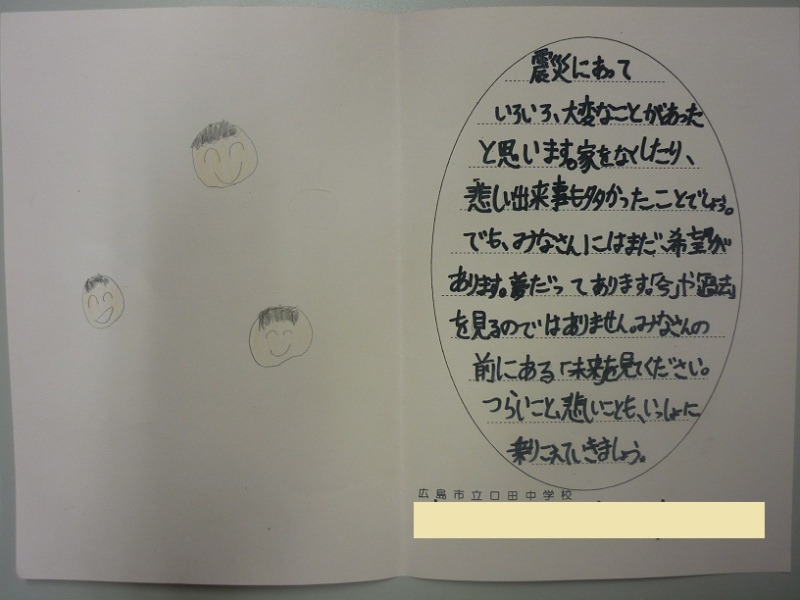 震災にあって
いろいろ、大変なことがあった
と思います。家をなくしたり、
悲しい出来事も多かったことでしょう。
でも、みなさんにはまだ、希望が
あります。夢だってあります。「今」や「過去」
を見るのではありません。みなさんの
前にある「未来」を見てください。
つらいこと、悲しいことも、いっしょに
乗りこえていきましょう。
広島市立口田中学校